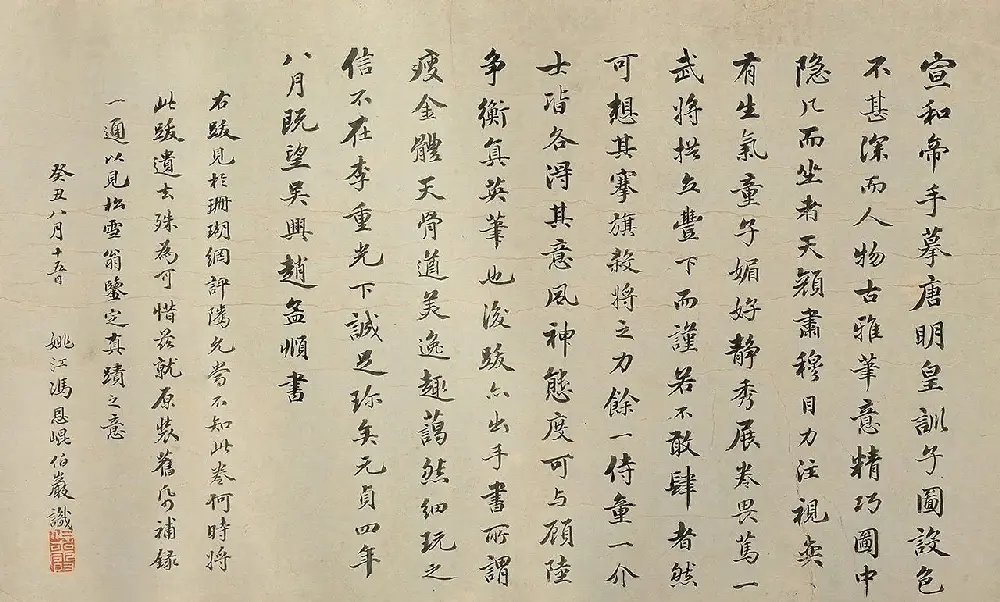 宣和帝手摹唐明皇訓子圖設色
不甚深而人物古雅筆意精巧圖中
隐几而坐者天顏肅穆目力注視奕
有生氣童子媚好静秀展卷畏篤一
武將拱立豐下而謹若不敢肆者然
可想其搴旗殺將之力餘一侍童一介
士皆各得其意風神態度可与顧陸
争衡真英筆也後跋亦出手書所謂
瘦金體天骨遒美逸趣藹然細玩之
信不在李重光下誠足珎矣元貞四年
八月既望吴興趙孟順書
右跋見於珊瑚網評隲允當不知此卷何時將
此跋遺去殊為可惜茲就原裝舊帋補録
一通以見松雪翁鑒定真蹟之意
癸丑八月十五日 姚江馮恩崐伯巖識